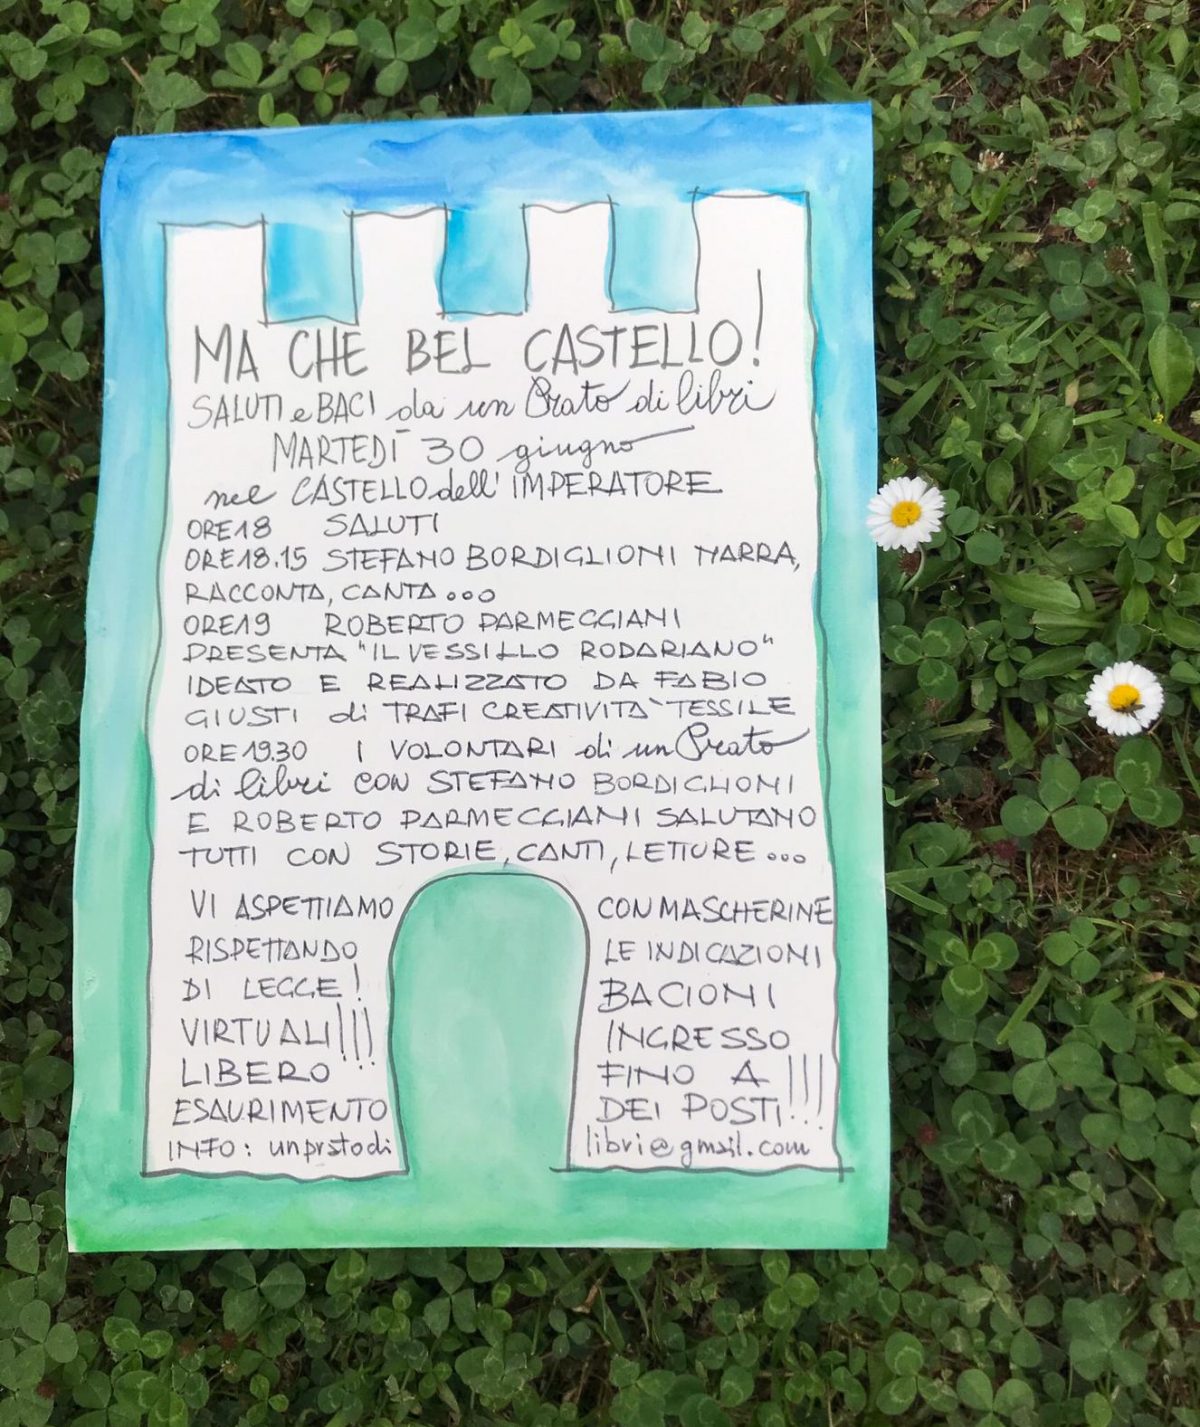 MA CHE BEL CASTELLO!
SALUTI e BACI da un Prato di libri
MARTEDÌ 30 giugno
nel CASTELLO dell' IMPERATORE
ORE 18 SALUTI
ORE 18.15 STEFANO BORDIGLIONI NARRA,
RACCONTA, CANTA...
ORE 19 ROBERTO PARMEGGIANI
PRESENTA "IL VESSILLO RODARIANO"
IDEATO E REALIZZATO DA FABIO
GIUSTI di TRAFI CREATIVITA` TESSILE
ORE 19.30 I VOLONTARI di un Prato
di libri CON STEFANO BORDIGLIONI
E ROBERTO PARMEGGIANI SALUTANO
TUTTI CON STORIE, CANTI, LETTURE...
VI ASPETTIAMO CON MASCHERINE
RISPETTANDO LE INDICAZIONI
DI LEGGE! BACIONI
VIRTUALI!!! INGRESSO
LIBERO FINO A
ESAURIMENTO DEI POSTI!!!
INFO: unpratodi libri@gmail.com